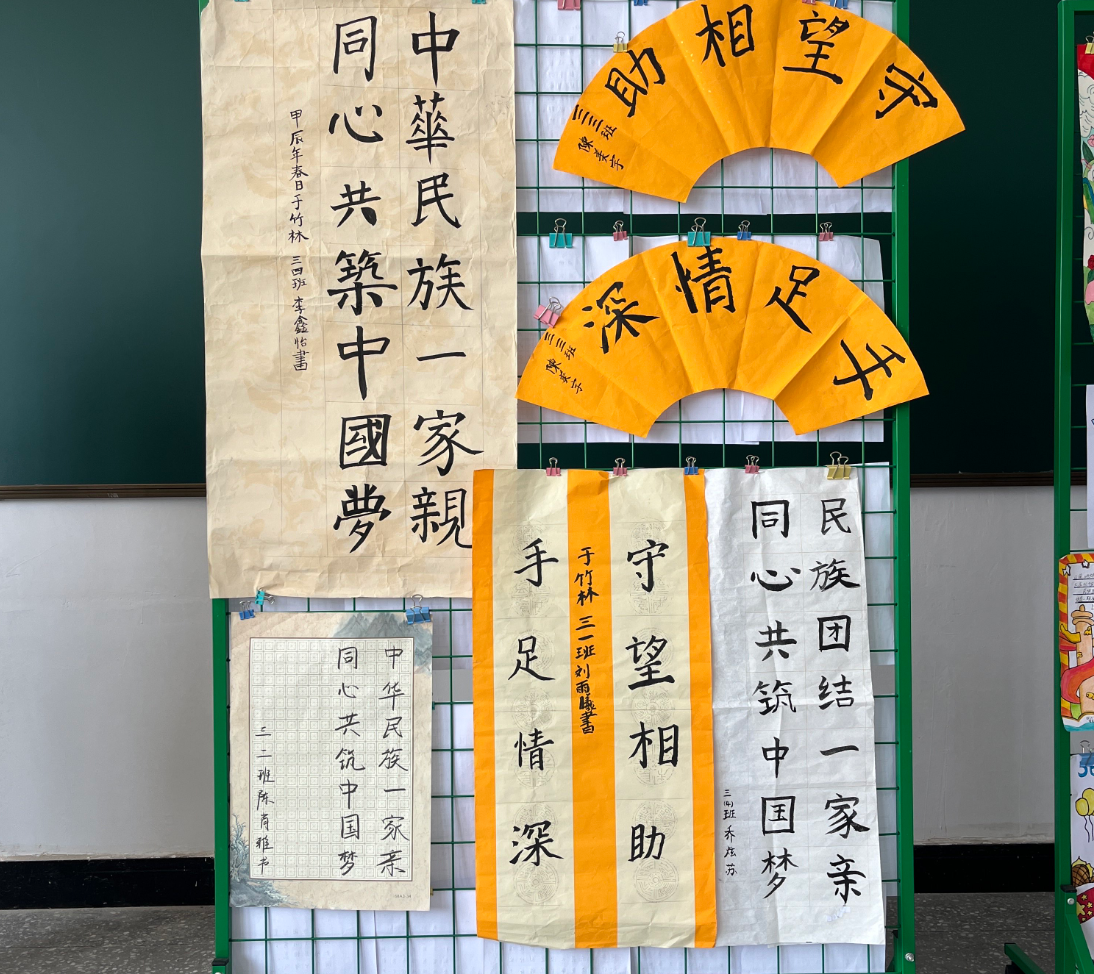 中華民族一家親
同心共築中國夢
甲辰年春日于竹林 三四班 李鑫怡書
守望相助
三三班
手足情深
三三班
中华民族一家亲
同心共筑中国梦
三二班陈育雅书
守望相助
于竹林 三一班刘雨曦書
手足情深
民族团结一家亲
同心共筑中国梦
三(4)班